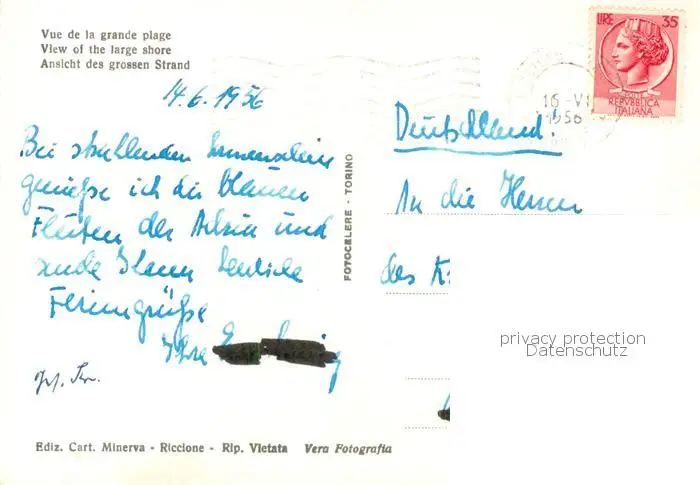 Vue de la grande plage
View of the large shore
Ansicht des grossen Strand
14.6.1956
Bei strahlendem Sonnenschein
genieße ich die blauen
Fluten der Adria und
sende Ihnen herzliche
Feriengrüße
Ihre
FOTOCELERE - TORINO
LIRE 35
REPVBBLICA
ITALIANA
16 -VI
1956
Deutschland!
An die Herren
des K
privacy protection
Datenschutz
Ediz. Cart. Minerva - Riccione - Rip. Vietata Vera Fotografia